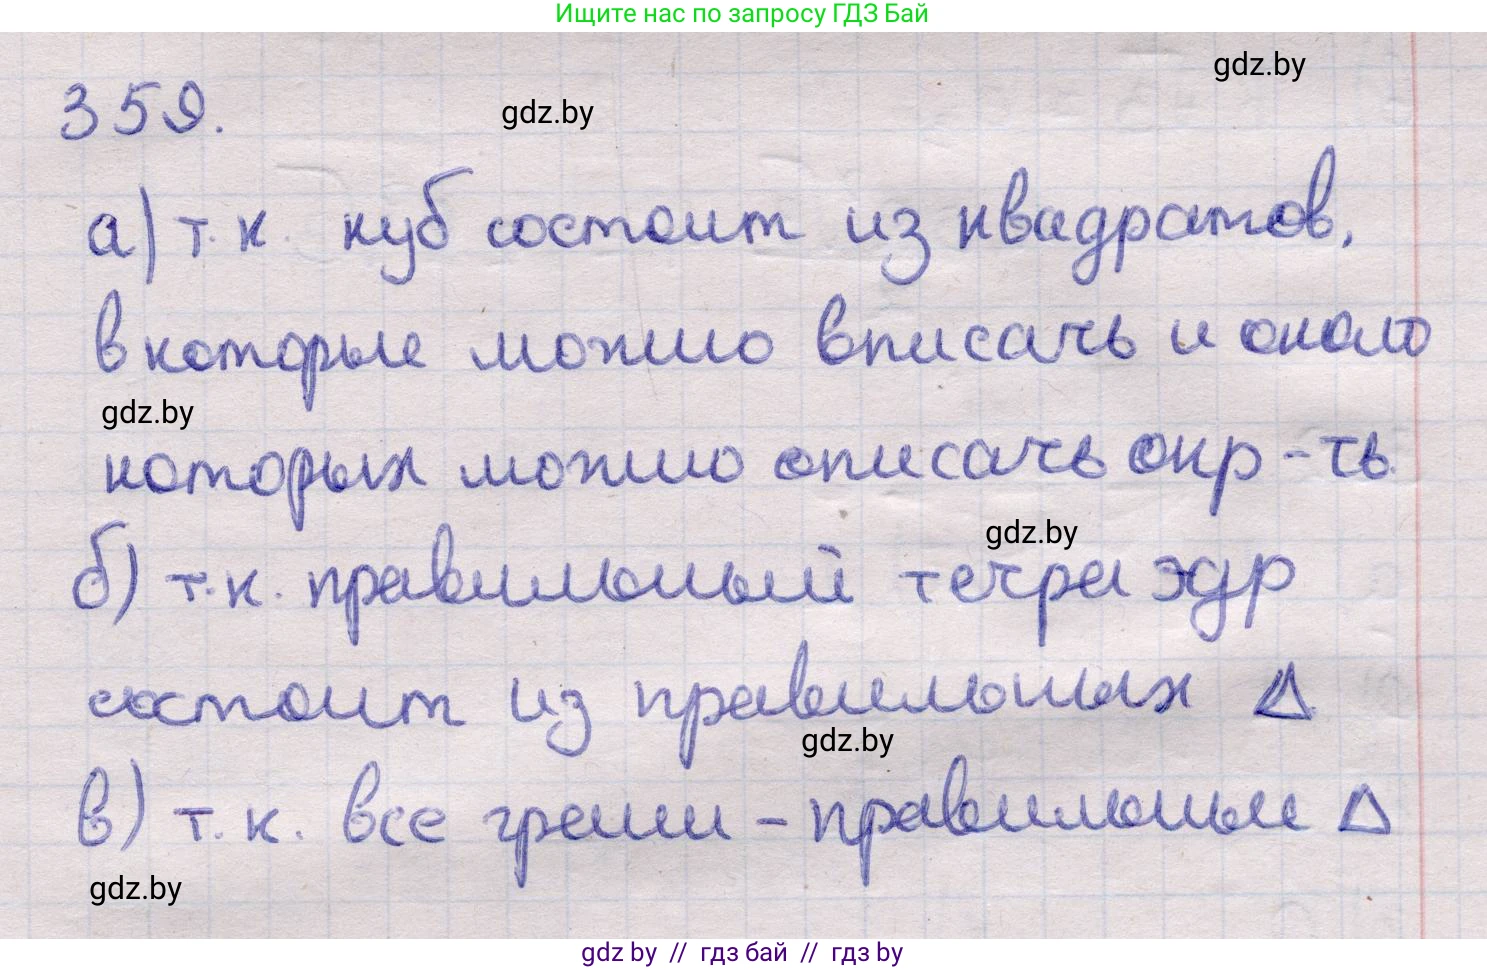 Ищите нас по запросу ГДЗ Бай
gdz.by
359.
gdz.by
а) т.к. куб состоит из квадратов,
в которые можно вписать и около
gdz.by
которых можно описать окр-ть.
gdz.by
б) т.к. правильный тетраэдр
состоит из правильных Δ
gdz.by
в) т.к. все грани – правильные Δ
gdz.by
gdz.by // гдз бай // гдз by